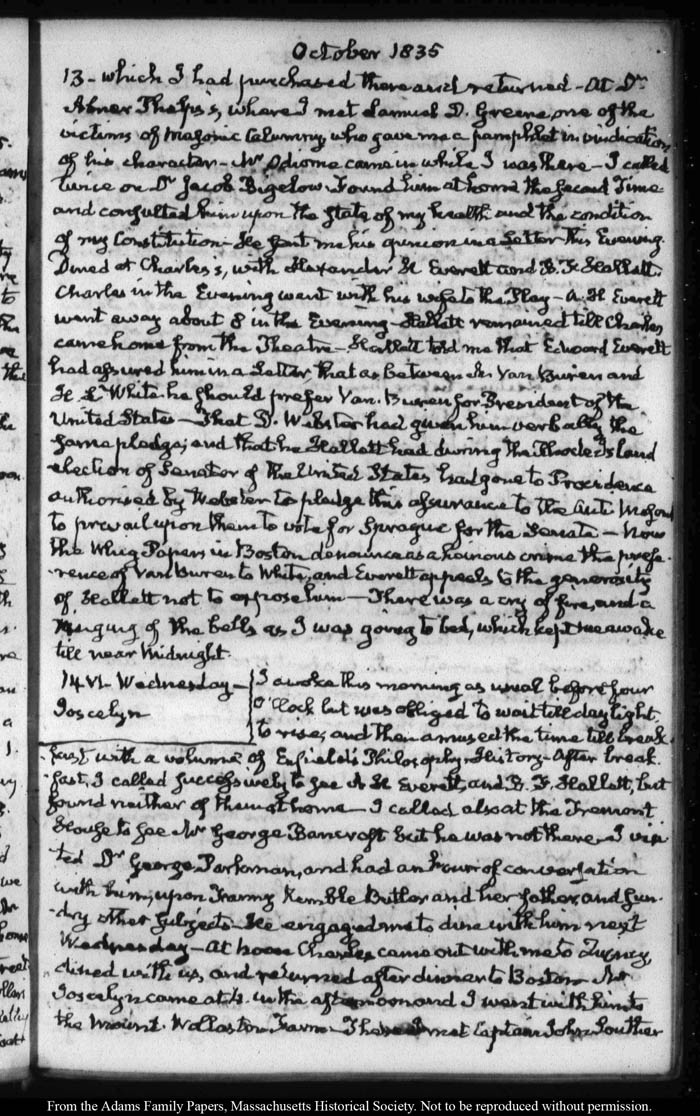 October 1835
13 - which I had purchased there and returned - At Dr.
Abner Phelps's, where I met Samuel D. Greene, one of the
victims of Masonic Calumny, who gave me a pamphlet in vindication
of his character - Mr. Odiorne came in while I was there - I called
twice on Dr. Jacob Bigelow. Found him at home the second Time
and consulted him upon the state of my health and the condition
of my Constitution - He sent me his opinion in a Letter this Evening.
Dined at Charles's, with Alexander H. Everett and B. F. Hallett.
Charles in the Evening went with his wife to the Play - A. H. Everett
went away about 8 in the Evening - Hallett remained till Charles
came home from the Theatre - Hallett told me that Edward Everett
had assured him in a Letter, that as between Mr. Van Buren and
H. L. White he should prefer Van Buren for President of the
United States - That D. Webster had given him verbally the
same pledge; and that he Hallett had during the Rhode Island
election of Senator of the United States had gone to Providence
authorised by Webster to pledge this assurance to the Anti Masons
to prevail upon them to vote for Sprague for the Senate - Now
the Whig Papers in Boston denounce as a heinous crime the prefe-
rence of Van Buren to White, and Everett appeals to the generosity
of Hallett not to expose him - There was a cry of fire, and a
ringing of the bells as I was going to bed, which kept me awake
till near Midnight.
14. VI. Wednesday - I awoke this morning as usual before four
Joscelyn O'Clock but was obliged to wait till day light,
to rise; and then amused the time till break-
fast with a volume of Enfield's Philosophy History - After break-
fast, I called successively to see A H Everett and B. F. Hallett, but
found neither of them at home - I called also at the Tremont
House to see Mr. George Bancroft but he was not there - I visi-
ted Dr. George Parkman, and had an hour of conversation
with him, upon Fanny Kemble Butler and her father, and sun-
dry other subjects - He engaged me to dine with him next
Wednesday - At noon Charles came out with me to Quincy,
dined with us, and returned after dinner to Boston - Mr.
Joscelyn came at 4. in the afternoon and I went with him to
the Mount. Wollaston Farm - There I met Captain John Souther
From the Adams Family Papers, Massachusetts Historical Society. Not to be reproduced without permission.